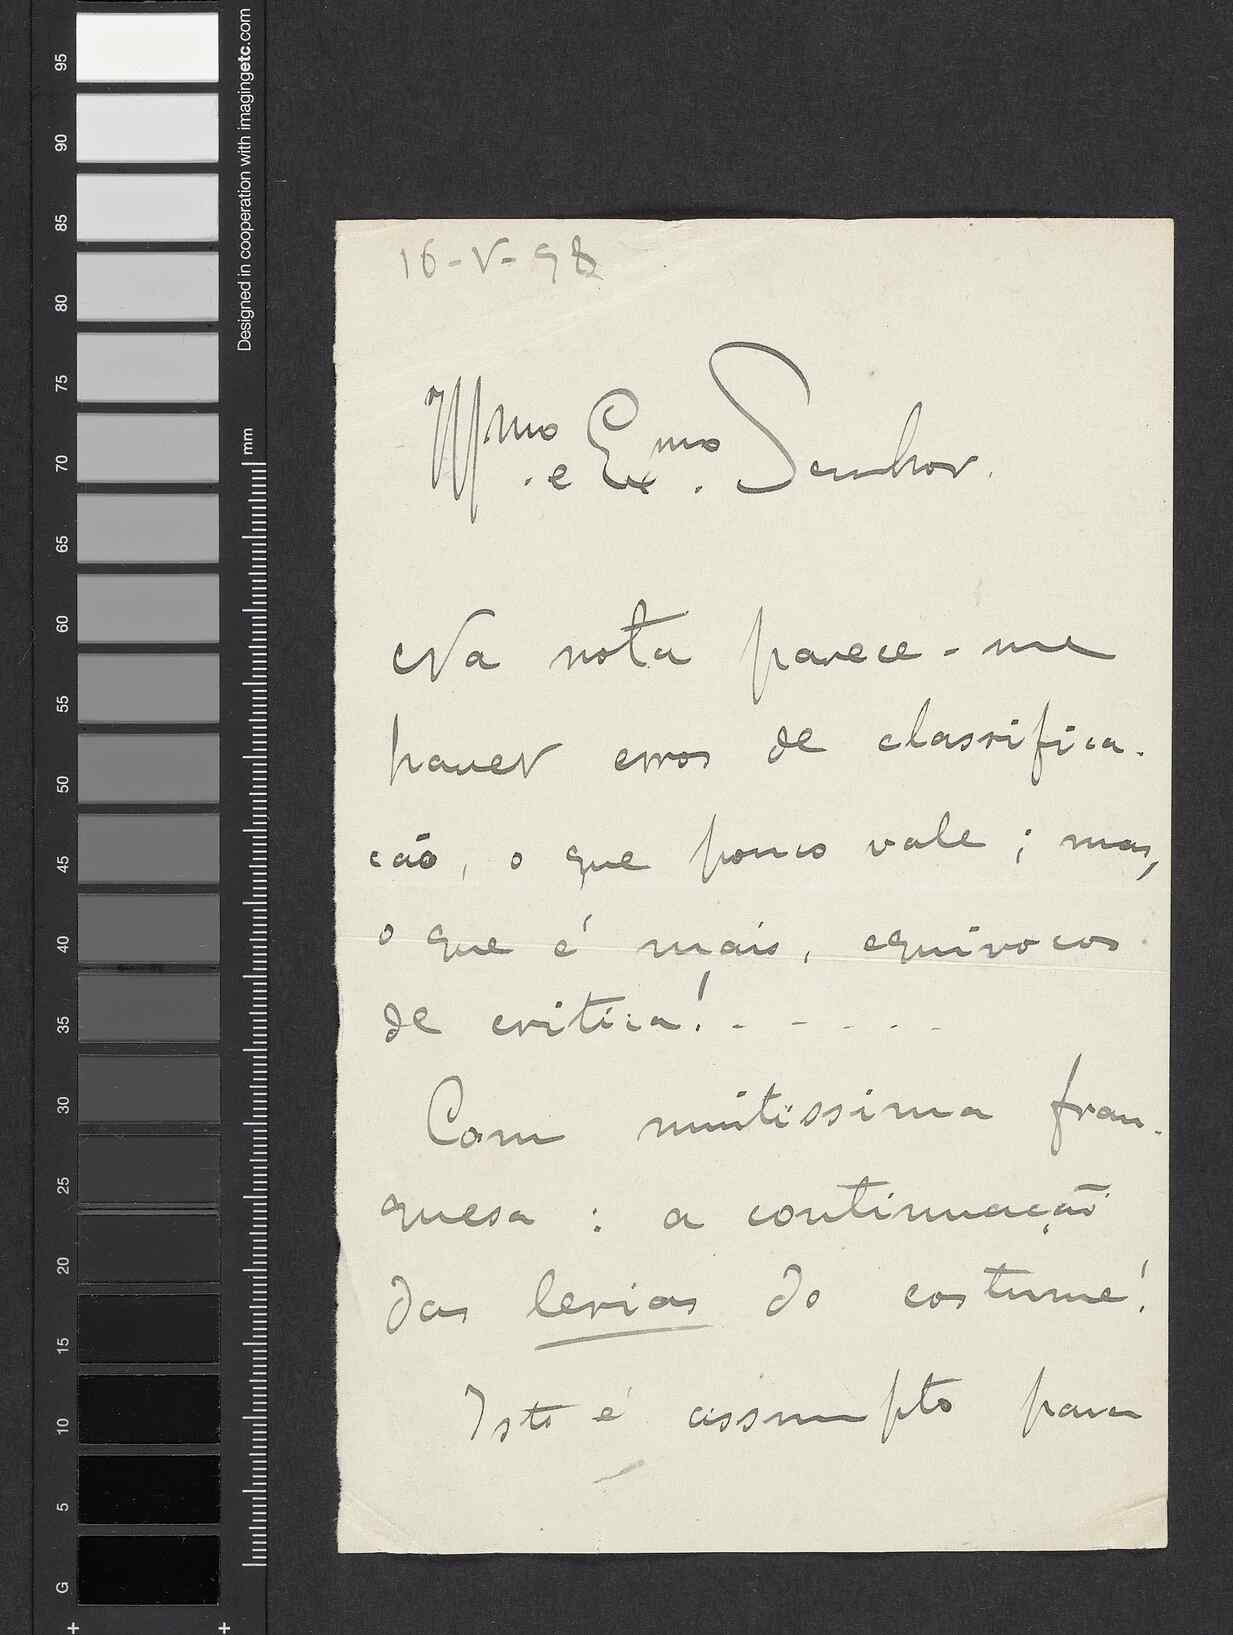 16-V-98
Illmo. e Exmo. Senhor.
Na nota parece-me
haver erros de classifica-
cão, o que pouco vale; mas,
o que é mais, equivocos
de critica! - - - - -
Com muitissima fran-
quesa: a continuação
das lerias do costume!
Isto é assumpto para
Designed in cooperation with imagingetc.com
mm
95
90
85
80
75
70
65
60
55
50
45
40
35
30
25
20
15
10
5
G